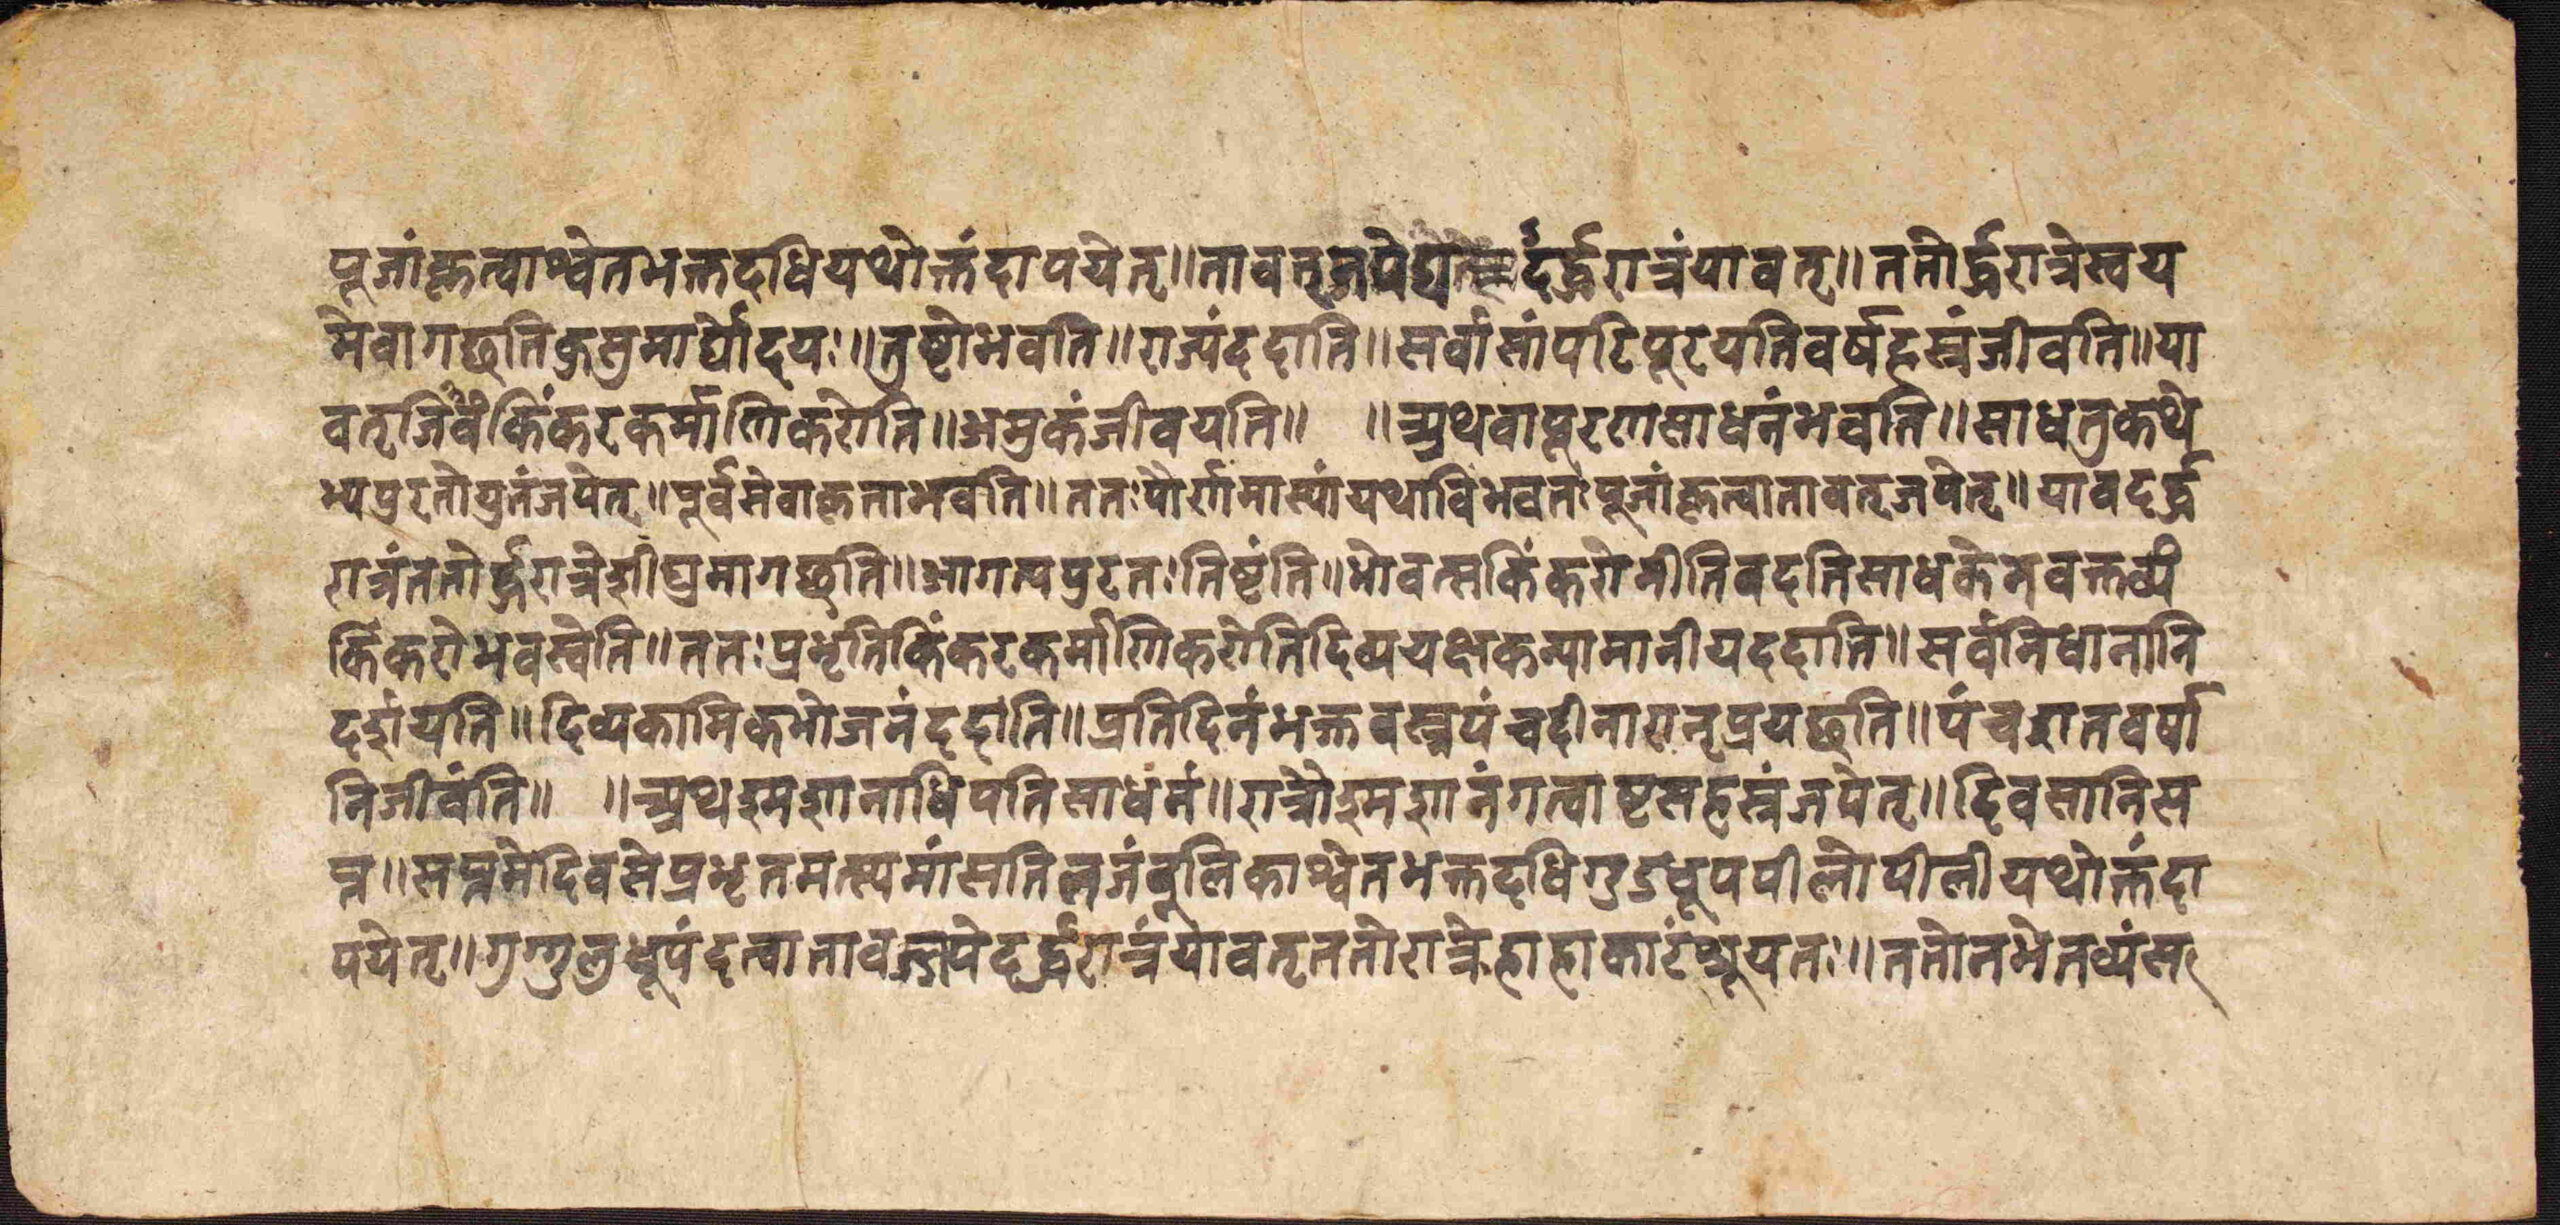 पूजांकृत्वाश्वेतभक्तदधियथोक्तंदापयेत्॥तावत्जपेद्यावदर्द्धरात्रंयावत्॥ततोर्द्धरात्रेस्वय
मेवागछतिकुसुमार्घ्योदयः॥तुष्टोभवति॥राज्यंददाति॥सर्वासांपरिपूरयतिवर्षहस्रंजीवति॥या
वत्जिवंकिंकरकर्माणिकरोति॥अमुकंजीवयति॥ ॥अथवापूरणसाधनंभवति॥साधतुकथे
भ्यपुरतोयुतंजपेत्॥पूर्वमेवाकृताभवति॥ततःपौर्णमास्यांयथाविभवतःपूजांकृत्वातावत्जपेत्॥यावदर्द्ध
रात्रंततोर्द्धरात्रेशीघ्रमागछति॥आगत्यपुरतःतिष्टंति॥भोवत्सकिंकरोमीतिवदतिसाधकेनवक्तव्यं
किंकरोभवस्वेति॥ततःप्रभृतिकिंकरकर्माणिकरोतिदिव्ययक्षकन्यामानीयददाति॥सर्वनिधानानि
दर्शयति॥दिव्यकामिकभोजनंददाति॥प्रतिदिनंभक्तवस्त्रपंचदीनारान्प्रयछति॥पंचशतवर्षा
निजीवंति॥ ॥अथश्मशानाधिपतिसाधनं॥रात्रोश्मशानंगत्वाष्टसहस्रंजपेत्॥दिवसानिस
प्त॥सप्तमेदिवसेप्रभृतमत्स्यमांसतिलजंबुलिकाश्वेतभक्तदधिगुडधूपपीलोपीलीयथोक्तंदा
पयेत्॥गुग्गुलुधूपंदत्वातावज्जपेदर्द्धरात्रंयावत्ततोरात्रेहाहाकारंश्रूयतः॥ततोनभेतव्यंस